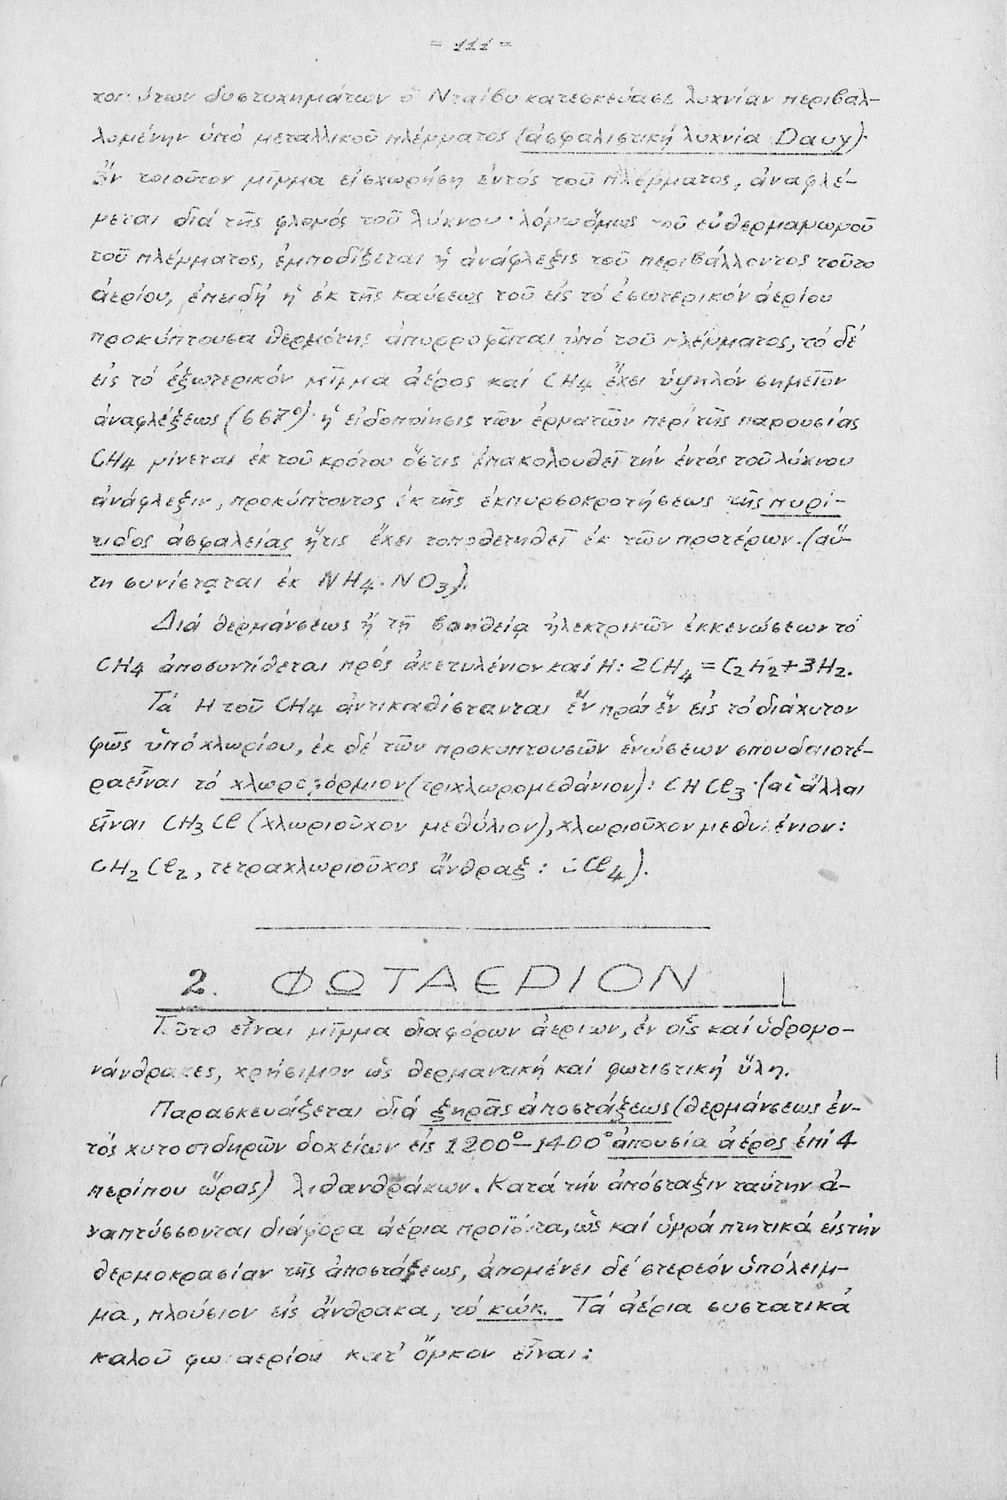 - 111 -
δυστυχημάτων ὁ Νταίβυ κατεσκεύασε λυχνίαν περιβαλ-
λομένην ὑπό μεταλλικοῦ πλέγματος (ἀσφαλιστική λυχνία Davy)·
Ἄν τοιοῦτον μῖγμα εἰσχωρήσῃ ἐντός τοῦ πλέγματος, ἀναφλέ-
γεται διά τῆς φλογός τοῦ λύχνου· λόγῳ ὅμως τοῦ εὐθερμαγωγοῦ
τοῦ πλέγματος, ἐμποδίζεται ἡ ἀνάφλεξις τοῦ περιβάλλοντος τοῦτο
ἀερίου, ἐπειδή ἡ ἐκ τῆς καύσεως τοῦ εἰς τό ἐσωτερικόν ἀερίου
προκύπτουσα θερμότης ἀπορροφᾶται ὑπό τοῦ πλέγματος, τό δέ
εἰς τό ἐξωτερικόν μῖγμα ἀέρος καί CH4 ἔχει ὑψηλόν σημεῖον
ἀναφλέξεως (667°)· ἡ εἰδοποίησις τῶν ἐργατῶν περί τῆς παρουσίας
CH4 γίνεται ἐκ τοῦ κρότου ὅστις ἐπακολουθεῖ τήν ἐντός τοῦ λύχνου
ἀνάφλεξιν, προκύπτοντος ἐκ τῆς ἐκπυρσοκροτήσεως τῆς πυρί-
τιδος ἀσφαλείας ἥτις ἔχει τοποθετηθεῖ ἐκ τῶν προτέρων. (αὕ-
τη συνίσταται ἐκ NH4.NO3).
Διά θερμάνσεως ἤ τῇ βοηθείᾳ ἠλεκτρικῶν ἐκκενώσεων τό
CH4 ἀποσυντίθεται πρός ἀκετυλένιον καί H: 2CH4 = C2H2+3H2.
Τά H τοῦ CH4 ἀντικαθίστανται ἕν πρός ἕν εἰς τό διάχυτον
φῶς ὑπό χλωρίου, ἐκ δέ τῶν προκυπτουσῶν ἑνώσεων σπουδαιοτέ-
ρα εἶναι τό χλωροφόρμιον (τριχλωρομεθάνιον): CHCl3·(αἱ ἄλλαι
εἶναι CH3Cl (χλωριοῦχον μεθύλιον), χλωριοῦχον μεθυλένιον:
CH2Cl2, τετραχλωριοῦχος ἄνθραξ: CCl4).
2. ΦΩΤΑΕΡΙΟΝ
Τοῦτο εἶναι μῖγμα διαφόρων ἀερίων, ἐν οἷς καί ὑδρογο-
νάνθρακες, χρήσιμον ὡς θερμαντική καί φωτιστική ὕλη.
Παρασκευάζεται διά ξηρᾶς ἀποστάξεως (θερμάνσεως ἐν-
τός χυτοσιδηρῶν δοχείων εἰς 1200°-1400° ἀπουσίᾳ ἀέρος ἐπί 4
περίπου ὥρας) λιθανθράκων. Κατά τήν ἀπόσταξιν ταύτην ἀ-
ναπτύσσονται διάφορα ἀέρια προϊόντα, ὡς καί ὑγρά πτητικά εἰς τήν
θερμοκρασίαν τῆς ἀποστάξεως, ἀπομένει δέ στερεόν ὑπόλειμ-
μα, πλούσιον εἰς ἄνθρακα, τό κώκ. Τά ἀέρια συστατικά
καλοῦ φωταερίου κατ' ὄγκον εἶναι: